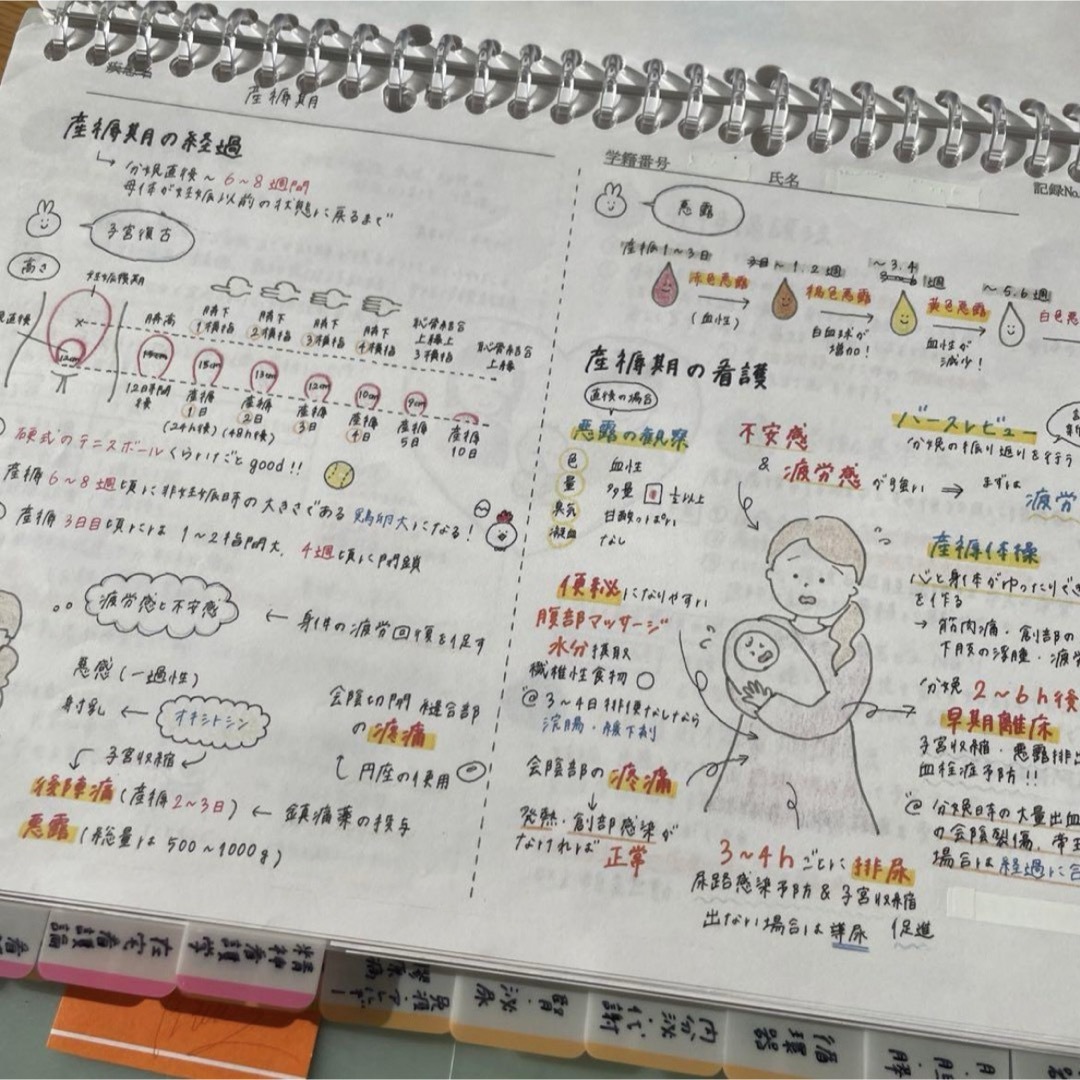 産褥期
産褥期の経過
分娩直後～6～8週間
母体が妊娠以前の状態に戻るまで
子宮復古
高さ
妊娠後期
直後
12cm
臍高
臍下
1横指
臍下
2横指
臍下
3横指
臍下
4横指
恥骨結合
上縁上
3横指
恥骨結合
上縁
15cm
13cm
12cm
10cm
9cm
12時間
後
産褥
1日
(24h後)
産褥
2日
(48h後)
産褥
3日
産褥
4日
産褥
5日
産褥
10日
硬式のテニスボールくらいけごとgood!!
産褥6～8週頃に非妊娠時の大きさである鶏卵大になる!
産褥3日目頃には1～2指開大、4週頃に閉鎖
疲労感と不安感
← 身体の疲労回復を促す
悪感(一過性)
射乳 ← オキシトシン
子宮収縮
後陣痛(産褥2～3日) ← 鎮痛薬の投与
悪露(総量は500～1000g)
会陰切開縫合部
の疼痛
円座の使用
学籍番号
氏名
記録No.
悪露
産褥1～3日
赤色悪露
(血性)
3日～1.2週
褐色悪露
白血球が
増加!
～3.4
週
黄色悪露
血性が
減少!
～5.6週
白色悪
産褥期の看護
直後の場合
悪露の観察
色 血性
量 多量 以上
臭気 甘酸っぱい
凝血 なし
不安感
& 疲労感が強い ⇒ まずは
疲労
バースレビュー
分娩の振り返りを行う
便秘になりやすい
腹部マッサージ
水分摂取
繊維性食物○
@3～4日排便なしなら
浣腸・緩下剤
会陰部の疼痛
↓
発熱・創部感染が
なければ正常
産褥体操
心と身体がゆったりでき
を作る
→ 筋肉痛・創部の
下肢の浮腫・疲労
分娩2～6h後
早期離床
子宮収縮・悪露排出
血栓症予防!!
@分娩時の大量出血
の会陰裂傷、帝王
場合は経過に合
3～4hごとに排尿
尿路感染予防&子宮収縮
促進
出ない場合は導尿
在宅看護論
精神看護学
内分泌・代謝
循環器